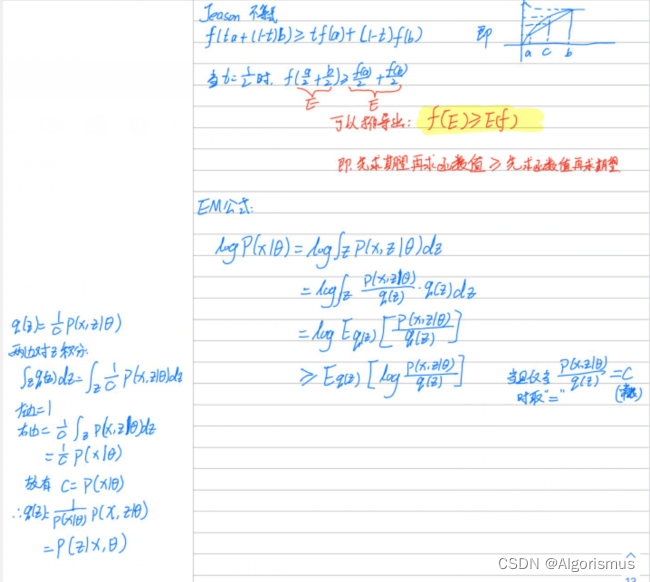 Jenson 不等式
f(ta+(1-t)b)≥tf(a)+(1-t)f(b)
即
a c b
当t=1/2时, f(a/2+b/2)≥f(a)/2+f(b)/2
E E
可以推导出: f(E)≥E(f)
即 先求期望再求函数值≥先求函数值再求期望
EM公式:
log P(x|θ)=log∫z P(x,z|θ)dz
=log∫z P(x,z|θ)/q(z)·q(z)dz
=log Eq(z)[P(x,z|θ)/q(z)]
≥Eq(z)[log P(x,z|θ)/q(z)]
当且仅当 P(x,z|θ)/q(z)=C
时取"=" (常数)
q(z)=1/C P(x,z|θ)
两边对z积分:
∫z q(z)dz=∫z 1/C P(x,z|θ)dz
左边=1
右边=1/C∫z P(x,z|θ)dz
=1/C P(x|θ)
故有 C=P(x|θ)
∴q(z)=1/P(x|θ) P(x,z|θ)
=P(z|x,θ)
12
CSDN @Algorismus